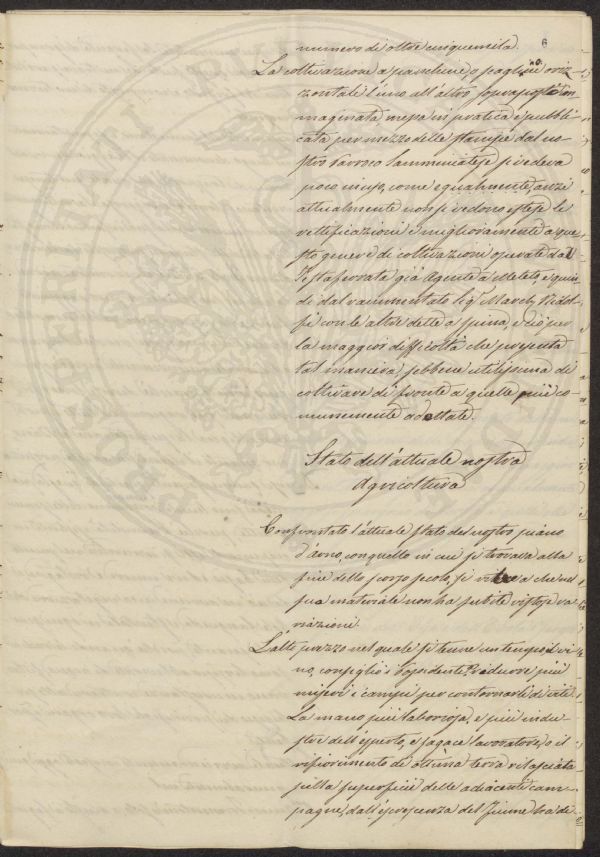 6
numero di oltre cinquemila.
La coltivazione a pianeline, o paglino oriz-
zontale l'uno all'altro sopraposti im
maginata, messa in pratica e pubbli-
cata per mezzo delle stampe dal no-
stro Paroco Samminiatese si vedeva
poco in uso, come egualmente, anzi
attualmente non si vedono estese le
rettificazioni e miglioramenti a que
sto genere di coltivazioni operate dal
Testaferrata già Agente a Meleto, e quin
di dal rammentato Sig.r March. Ridol-
fi con le altre dette a spina, e ciò per
la maggior difficoltà che presenta
tal maniera, sebbene utilissima di
coltivare di fronte a quelle più co-
munemente adottate.
Stato dell'attuale nostra
Agricoltura
Confrontato l'attuale stato del nostro piano
d'Arno, con quello in cui si trovava alla
fine dello scorso secolo, si vede che nel
suo materiale non ha subite vistose va
riazioni.
L'alto prezzo nel quale si tenne un tempo il vi
no, consigliò i Possidenti a ridurre più
miseri i campi per contornarli di viti.
La mano più laboriosa, e più indu-
stre dell'esperto, e sagace lavoratore, o il
rifiorimento di ottima terra rilasciata
sulla superficie delle adiacenti cam-
pagne, dall'escrescenza del Fiume ha de